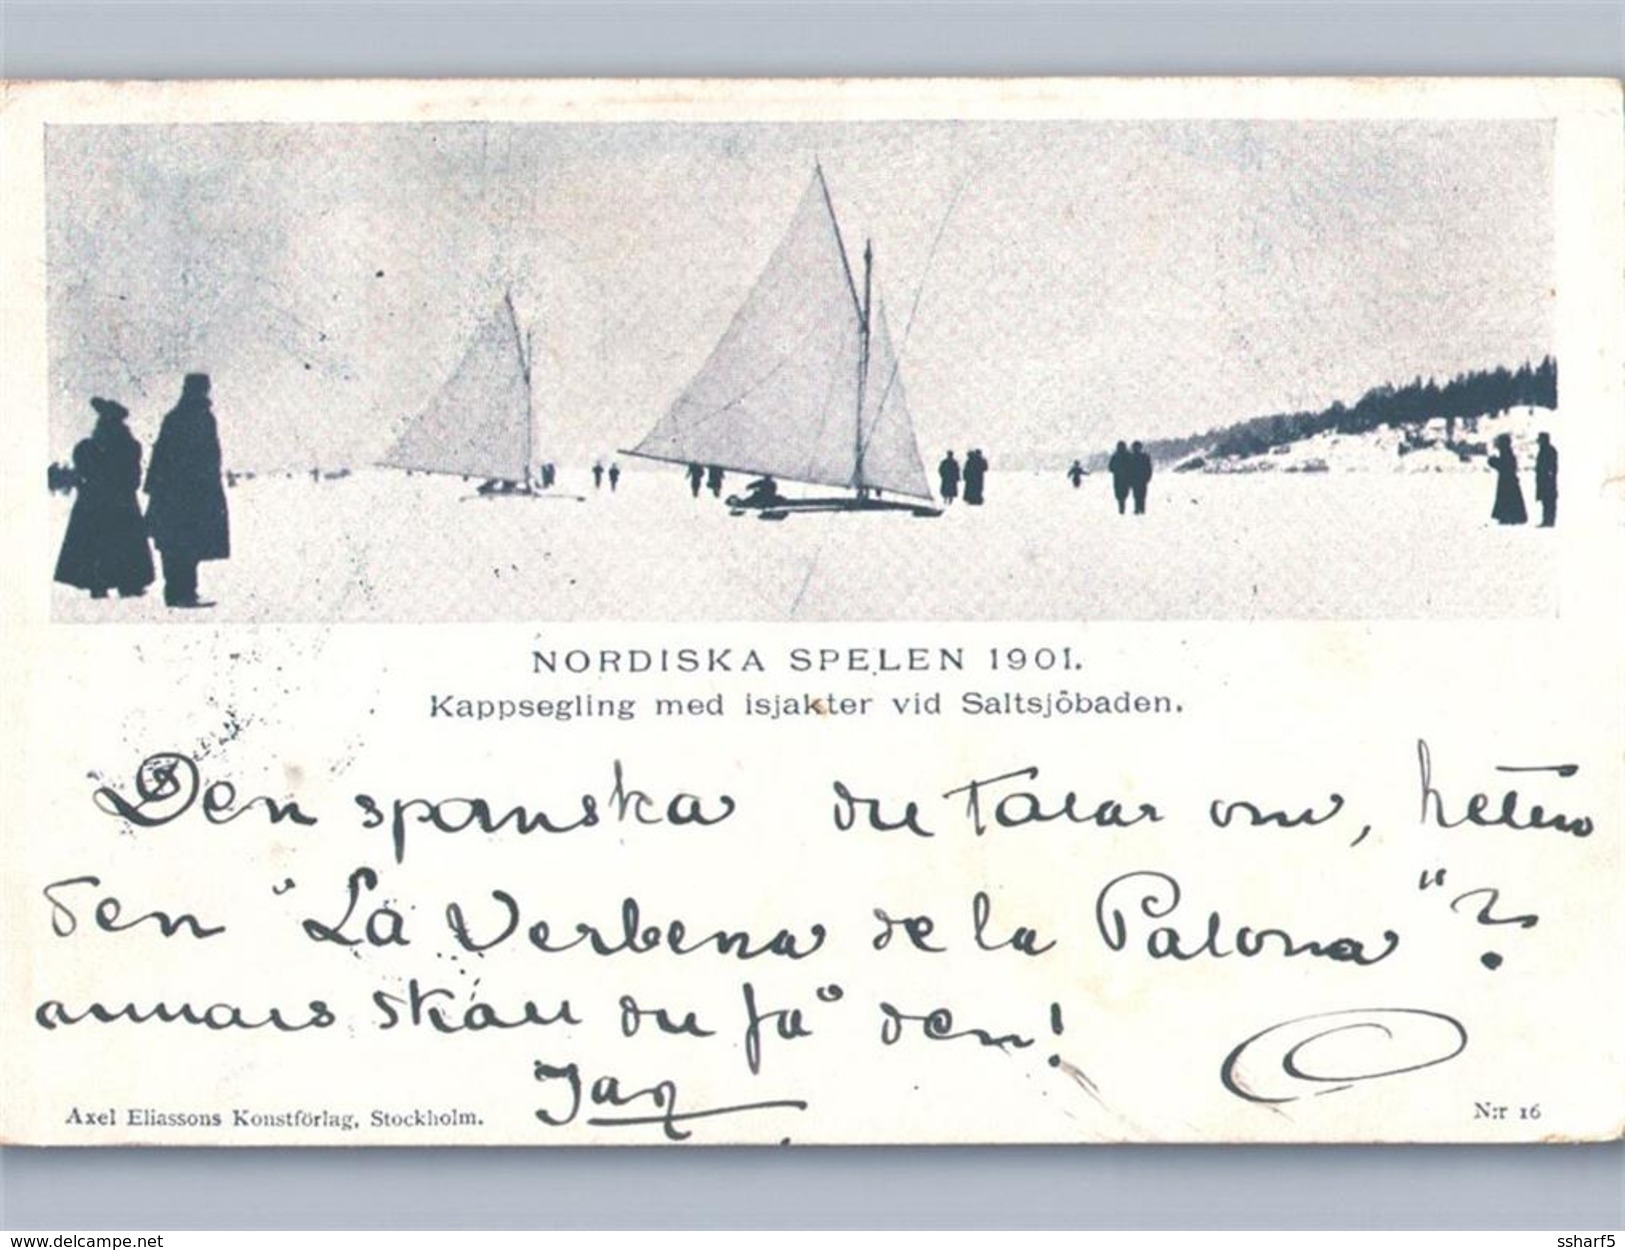 NORDISKA SPELEN 1901.
Kappsegling med isjakter vid Saltsjöbaden.
Den spanska du talar om, heter
den "La Verbena de la Paloma"?
annars skall du få den!
Jag
Axel Eliassons Konstförlag, Stockholm.
N:r 16
www.delcampe.net
ssharf5